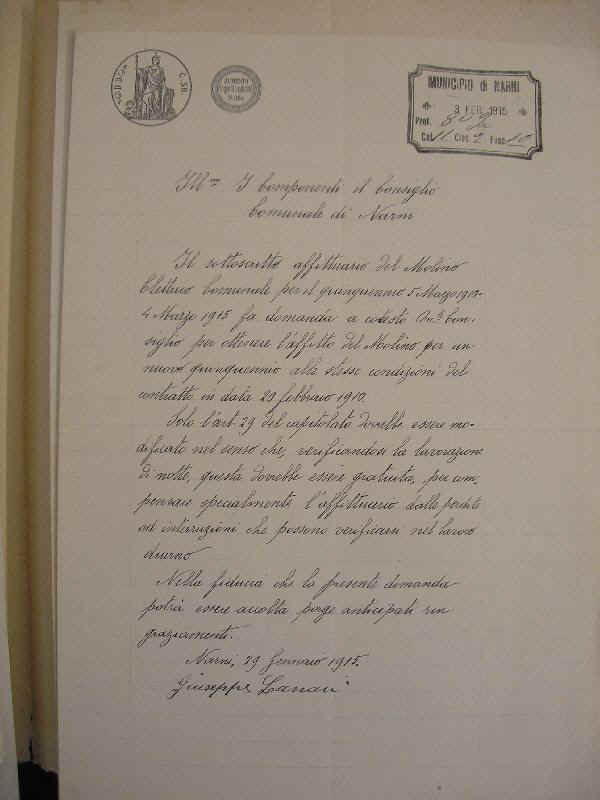 MUNICIPIO di NARNI
3 FEB. 1915
Prot.
Cat. 11 Clas. 2 Fasc. 10
Ill.mi I componenti il Consiglio
Comunale di Narni
Il sottoscritto affittuario del Molino
Elettrico Comunale per il quinquennio 5 Marzo 1910-
4 Marzo 1915 fa domanda a codesto On. Con-
siglio per ottenere l'affitto del Molino per un
nuovo quinquennio alle stesse condizioni del
contratto in data 29 febbraio 1910.
Solo l'art. 29 del capitolato dovrebbe essere mo-
dificato nel senso che, verificandosi la lavorazione
di notte, questa dovrebbe essere gratuita, per com-
pensare specialmente l'affittuario dalle perdite
ed interruzioni che possono verificarsi nel lavoro
diurno
Nella fiducia che la presente domanda
potrà essere accolta porge anticipati rin
graziamenti.
Narni, 29 Gennaio 1915.
Giuseppe Lanari